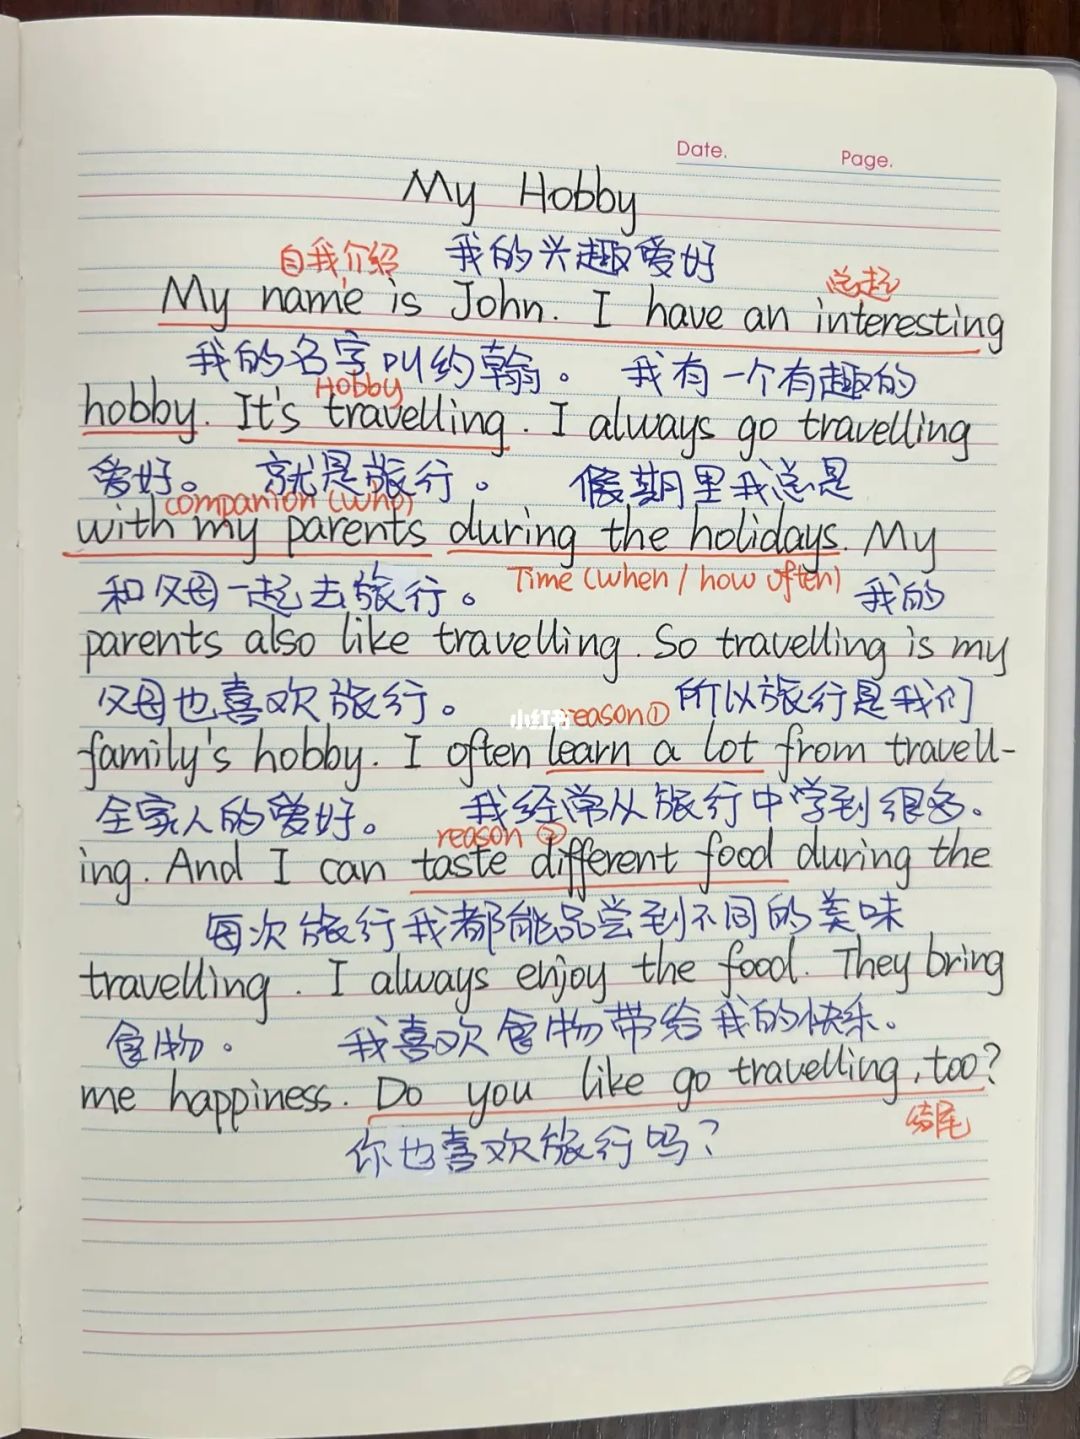 Date. Page.
My Hobby
自我介绍 我的兴趣爱好 总起
My name is John. I have an interesting
我的名字叫约翰。 我有一个有趣的
Hobby
hobby. It's travelling. I always go travelling
爱好。 就是旅行。 假期里我总是
companion (who)
with my parents during the holidays. My
和父母一起去旅行。 Time (when / how often) 我的
parents also like travelling. So travelling is my
父母也喜欢旅行。 所以旅行是我们
小红书 reason①
family's hobby. I often learn a lot from travell-
全家人的爱好。 我经常从旅行中学到很多。
reason ②
ing. And I can taste different food during the
每次旅行我都能品尝到不同的美味
travelling. I always enjoy the food. They bring
食物。 我喜欢食物带给我的快乐。
me happiness. Do you like go travelling, too?
结尾
你也喜欢旅行吗?